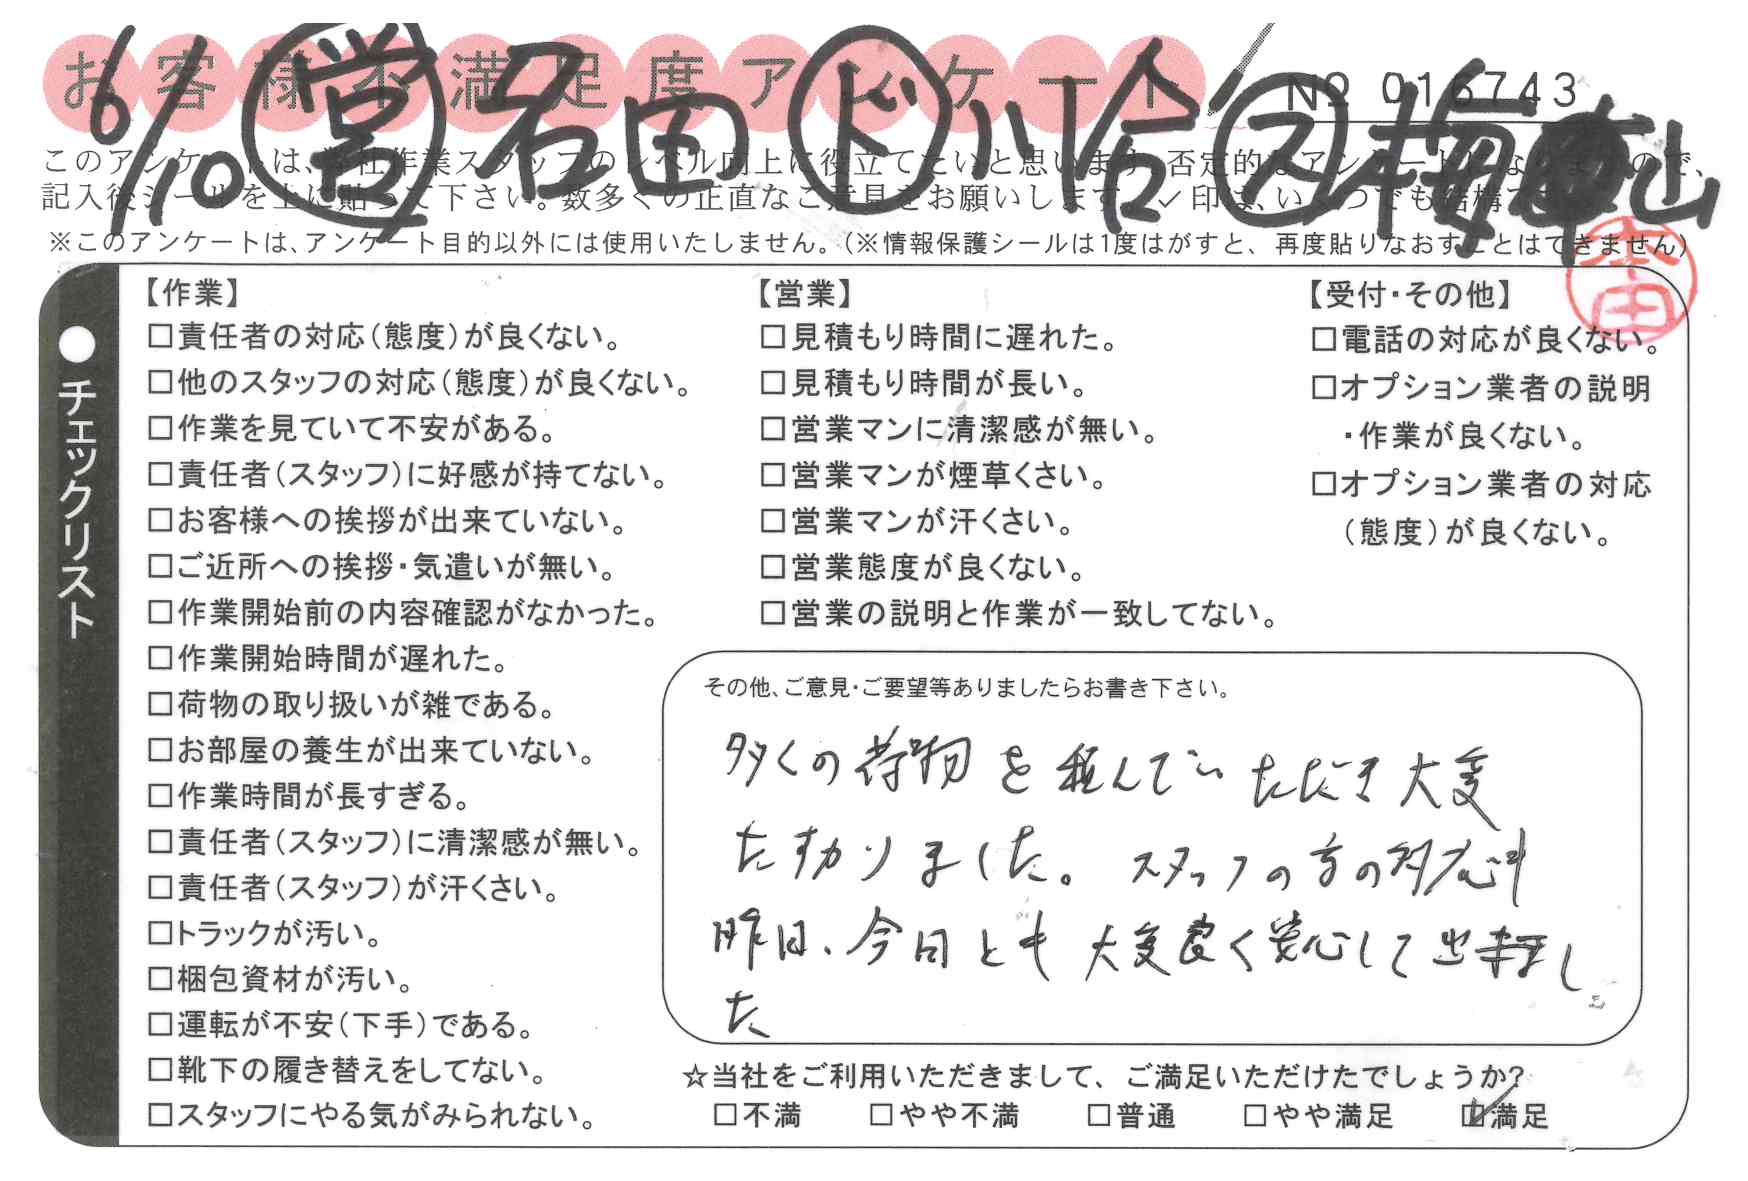 お客様不満足度アンケート
№ 016743
6/10 営 石田 ド 小谷 ス 梅 山
このアンケートは、弊社作業スタッフのレベル向上に役立てたいと思います。否定的なアンケートになりますので、
記入後シールを上に貼って下さい。数多くの正直なご意見をお願いします。✓印は、いくつでも結構です。
※このアンケートは、アンケート目的以外には使用いたしません。(※情報保護シールは1度はがすと、再度貼りなおすことはできません)
本田
●チェックリスト
【作業】
□責任者の対応(態度)が良くない。
□他のスタッフの対応(態度)が良くない。
□作業を見ていて不安がある。
□責任者(スタッフ)に好感が持てない。
□お客様への挨拶が出来ていない。
□ご近所への挨拶・気遣いが無い。
□作業開始前の内容確認がなかった。
□作業開始時間が遅れた。
□荷物の取り扱いが雑である。
□お部屋の養生が出来ていない。
□作業時間が長すぎる。
□責任者(スタッフ)に清潔感が無い。
□責任者(スタッフ)が汗くさい。
□トラックが汚い。
□梱包資材が汚い。
□運転が不安(下手)である。
□靴下の履き替えをしてない。
□スタッフにやる気がみられない。
【営業】
□見積もり時間に遅れた。
□見積もり時間が長い。
□営業マンに清潔感が無い。
□営業マンが煙草くさい。
□営業マンが汗くさい。
□営業態度が良くない。
□営業の説明と作業が一致してない。
【受付・その他】
□電話の対応が良くない。
□オプション業者の説明
・作業が良くない。
□オプション業者の対応
(態度)が良くない。
その他、ご意見・ご要望等ありましたらお書き下さい。
多くの荷物を積んでいただき大変
たすかりました。スタッフの方の対応も
昨日、今日とも大変良く安心して出来まし
た
☆当社をご利用いただきまして、ご満足いただけたでしょうか?
□不満 □やや不満 □普通 □やや満足 ☑満足